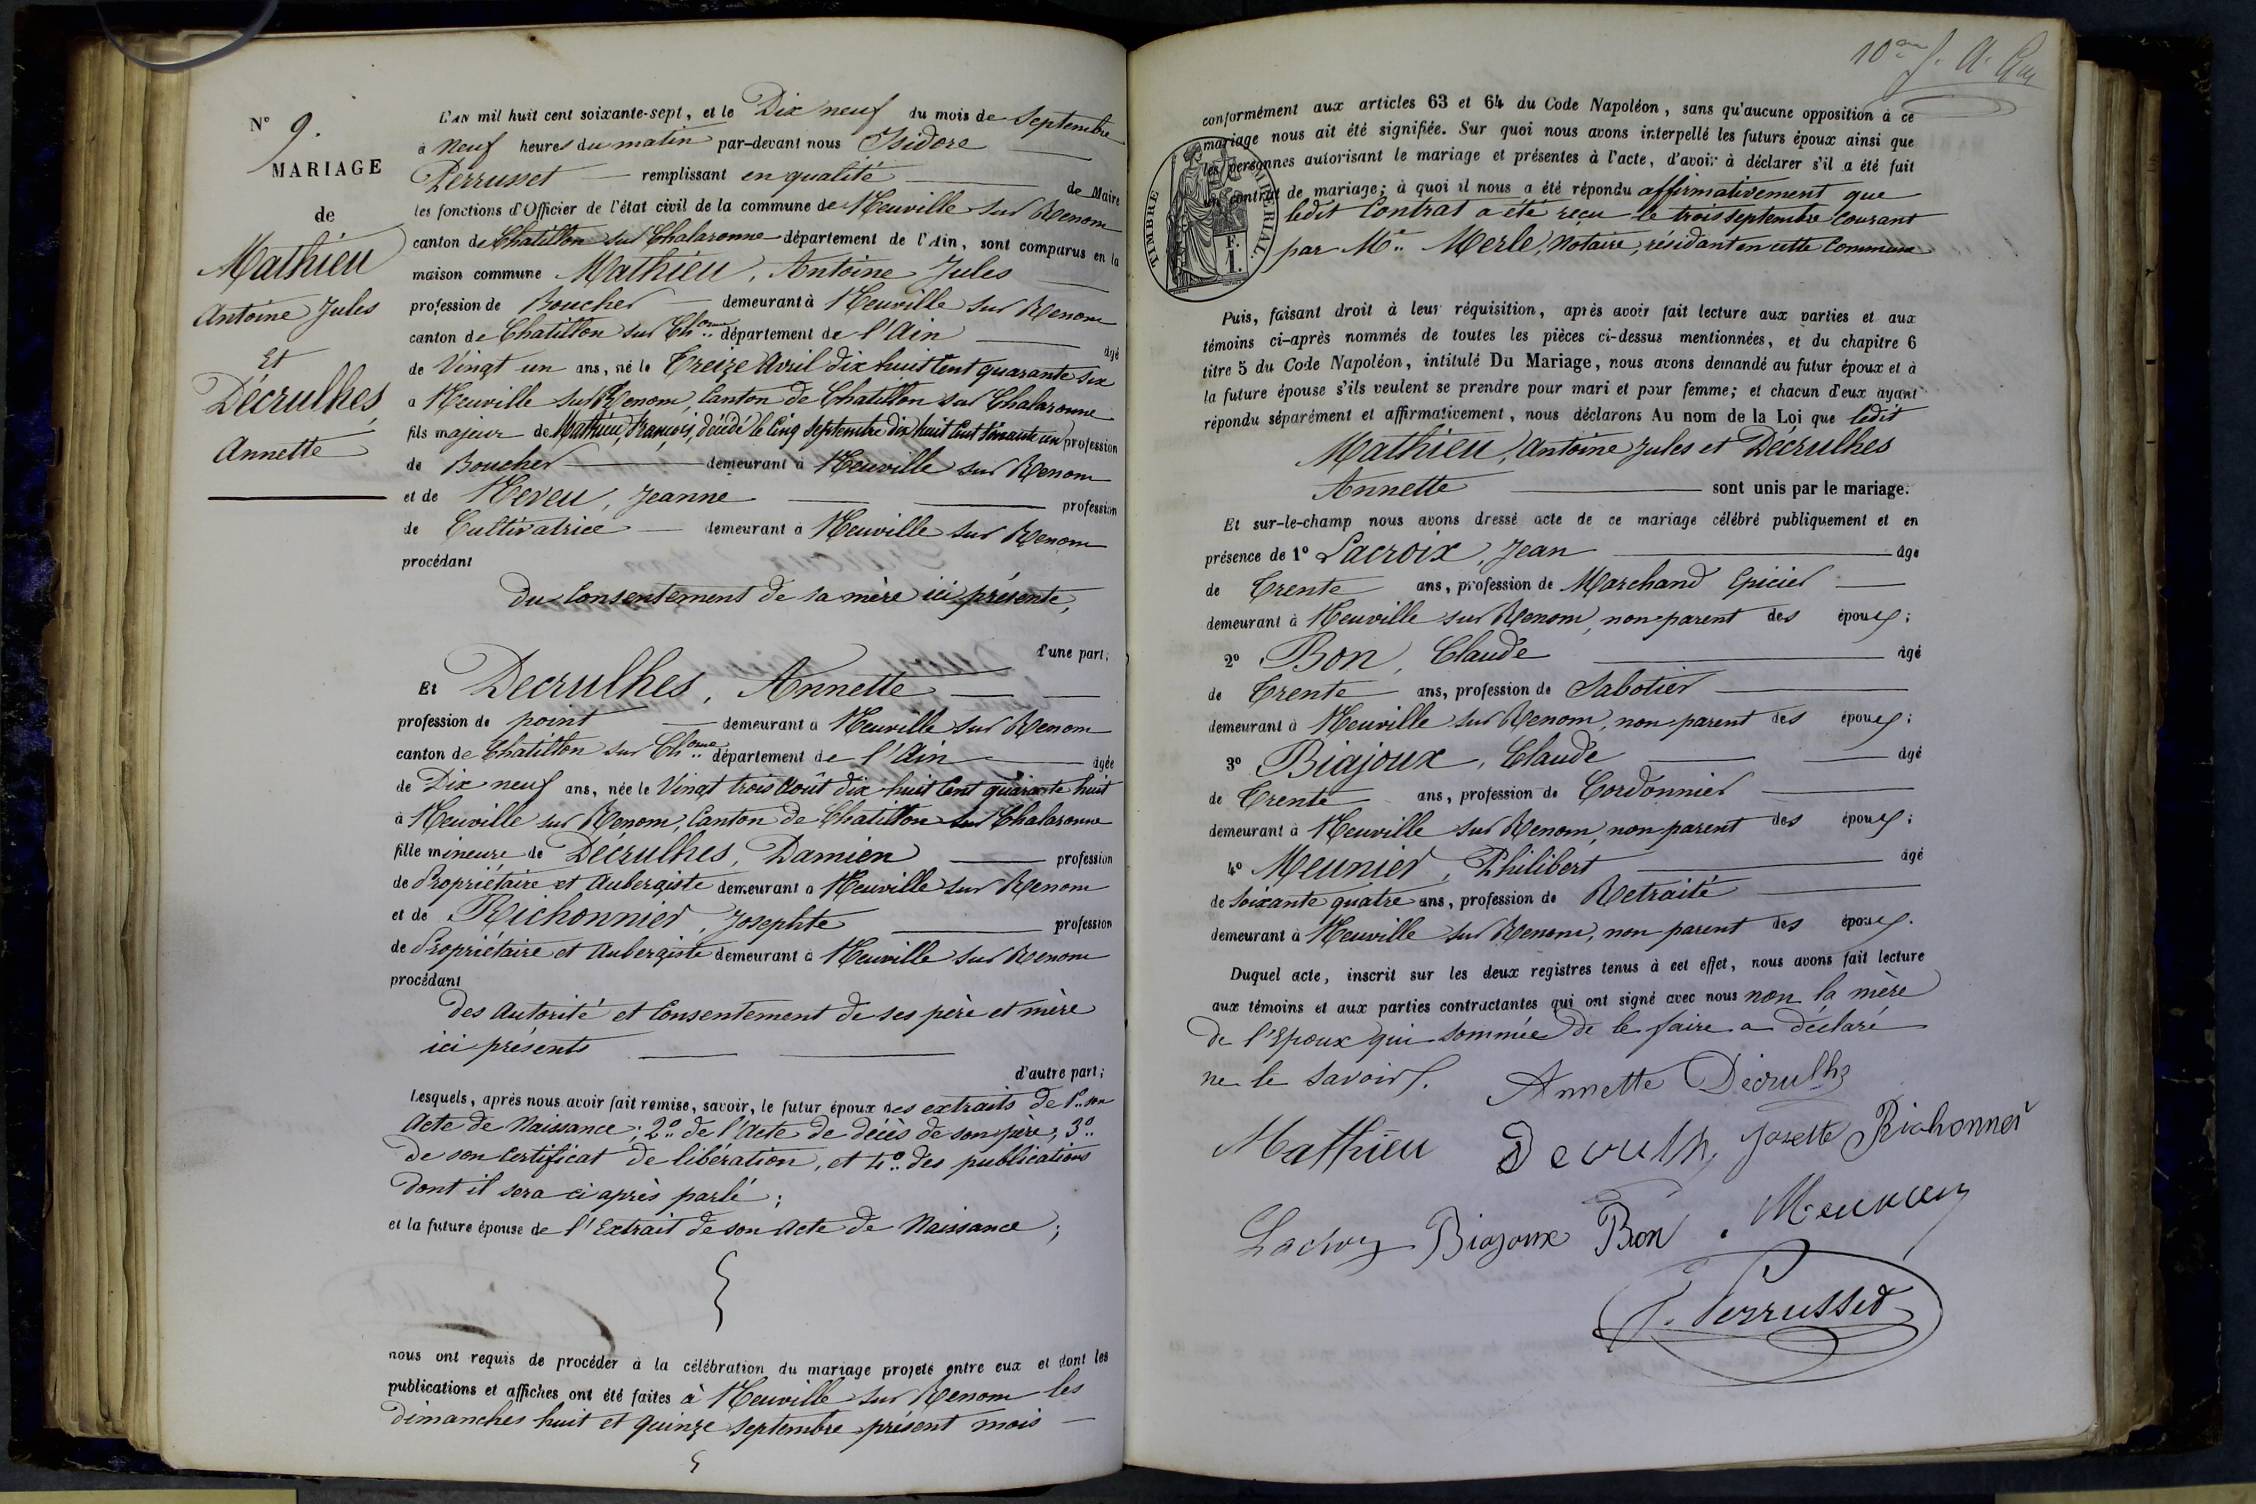 N° 9.
MARIAGE
de
Mathieu
Antoine Jules
Et
Décrulhes,
Annette
L'AN mil huit cent soixante-sept, et le Dix neuf du mois de Septembre
à Neuf heures du matin par-devant nous Isidore
Perrusset remplissant en qualité de Maire
les fonctions d'Officier de l'état civil de la commune de Neuville sur Renom
canton de Chatillon sur Chalaronne département de l'Ain, sont comparus en la
maison commune Mathieu, Antoine Jules
profession de Boucher demeurant à Neuville sur Renom
canton de Chatillon sur Ch.onne département de l'Ain âgé
de Vingt un ans, né le Treize Avril dix huit Cent quarante six
à Neuville sur Renom, Canton de Chatillon sur Chalaronne
fils majeur de Mathieu, François, décédé le Cinq Septembre dix huit Cent soixante un profession
de Boucher demeurant à Neuville sur Renom
et de Neveu, Jeanne profession
de Cultivatrice demeurant à Neuville sur Renom
procédant
du Consentement de sa mère ici présente,
d'une part;
Et Decrulhes, Annette
profession de point demeurant à Neuville sur Renom
canton de Chatillon sur Ch.onne département de l'Ain âgée
de Dix neuf ans, née le Vingt trois Août dix huit Cent quarante huit
à Neuville sur Renom, Canton de Chatillon sur Chalaronne
fille mineure de Decrulhes, Damien profession
de Propriétaire et Aubergiste demeurant à Neuville sur Renom
et de Richonnier, Josephte profession
de Propriétaire et Aubergiste demeurant à Neuville sur Renom
procédant
des Autorité et Consentement de ses père et mère
ici présents
d'autre part;
Lesquels, après nous avoir fait remise, savoir, le futur époux des extraits de 1° son
Acte de Naissance; 2° de l'Acte de décès de son père; 3°
de son Certificat de libération, et 4° des publications
dont il sera ci après parlé;
et la future épouse de l'Extrait de son Acte de Naissance;
nous ont requis de procéder à la célébration du mariage projeté entre eux et dont les
publications et affiches ont été faites à Neuville sur Renom les
dimanches huit et quinze septembre présent mois
10me f.
conformément aux articles 63 et 64 du Code Napoléon, sans qu'aucune opposition à ce
mariage nous ait été signifiée. Sur quoi nous avons interpellé les futurs époux ainsi que
les personnes autorisant le mariage et présentes à l'acte, d'avoir à déclarer s'il a été fait
un contrat de mariage; à quoi il nous a été répondu affirmativement que
ledit Contrat a été reçu le trois septembre Courant
par Me Merle, Notaire, résidant en cette Commune
TIMBRE IMPÉRIAL.
F.
1.
Puis, faisant droit à leur réquisition, après avoir fait lecture aux parties et aux
témoins ci-après nommés de toutes les pièces ci-dessus mentionnées, et du chapitre 6
titre 5 du Code Napoléon, intitulé Du Mariage, nous avons demandé au futur époux et à
la future épouse s'ils veulent se prendre pour mari et pour femme; et chacun d'eux ayant
répondu séparément et affirmativement, nous déclarons Au nom de la Loi que ledit
Mathieu, Antoine Jules et Décrulhes
Annette sont unis par le mariage.
Et sur-le-champ nous avons dressé acte de ce mariage célébré publiquement et en
présence de 1° Lacroix, Jean âgé
de Trente ans, profession de Marchand Epicier
demeurant à Neuville sur Renom, non parent des époux;
2° Bon, Claude âgé
de Trente ans, profession de Sabotier
demeurant à Neuville sur Renom, non parent des époux;
3° Biajoux, Claude âgé
de Trente ans, profession de Cordonnier
demeurant à Neuville sur Renom, non parent des époux;
4° Meunier, Philibert âgé
de soixante quatre ans, profession de Retraité
demeurant à Neuville sur Renom, non parent des époux.
Duquel acte, inscrit sur les deux registres tenus à cet effet, nous avons fait lecture
aux témoins et aux parties contractantes qui ont signé avec nous non la mère
de l'Epoux qui sommée de le faire a déclaré
ne le savoir.
Annette Décrulhs
Mathieu Decrulhs Josette Richonnier
Lacroix Biajoux Bon Meunier
I. Perrusset